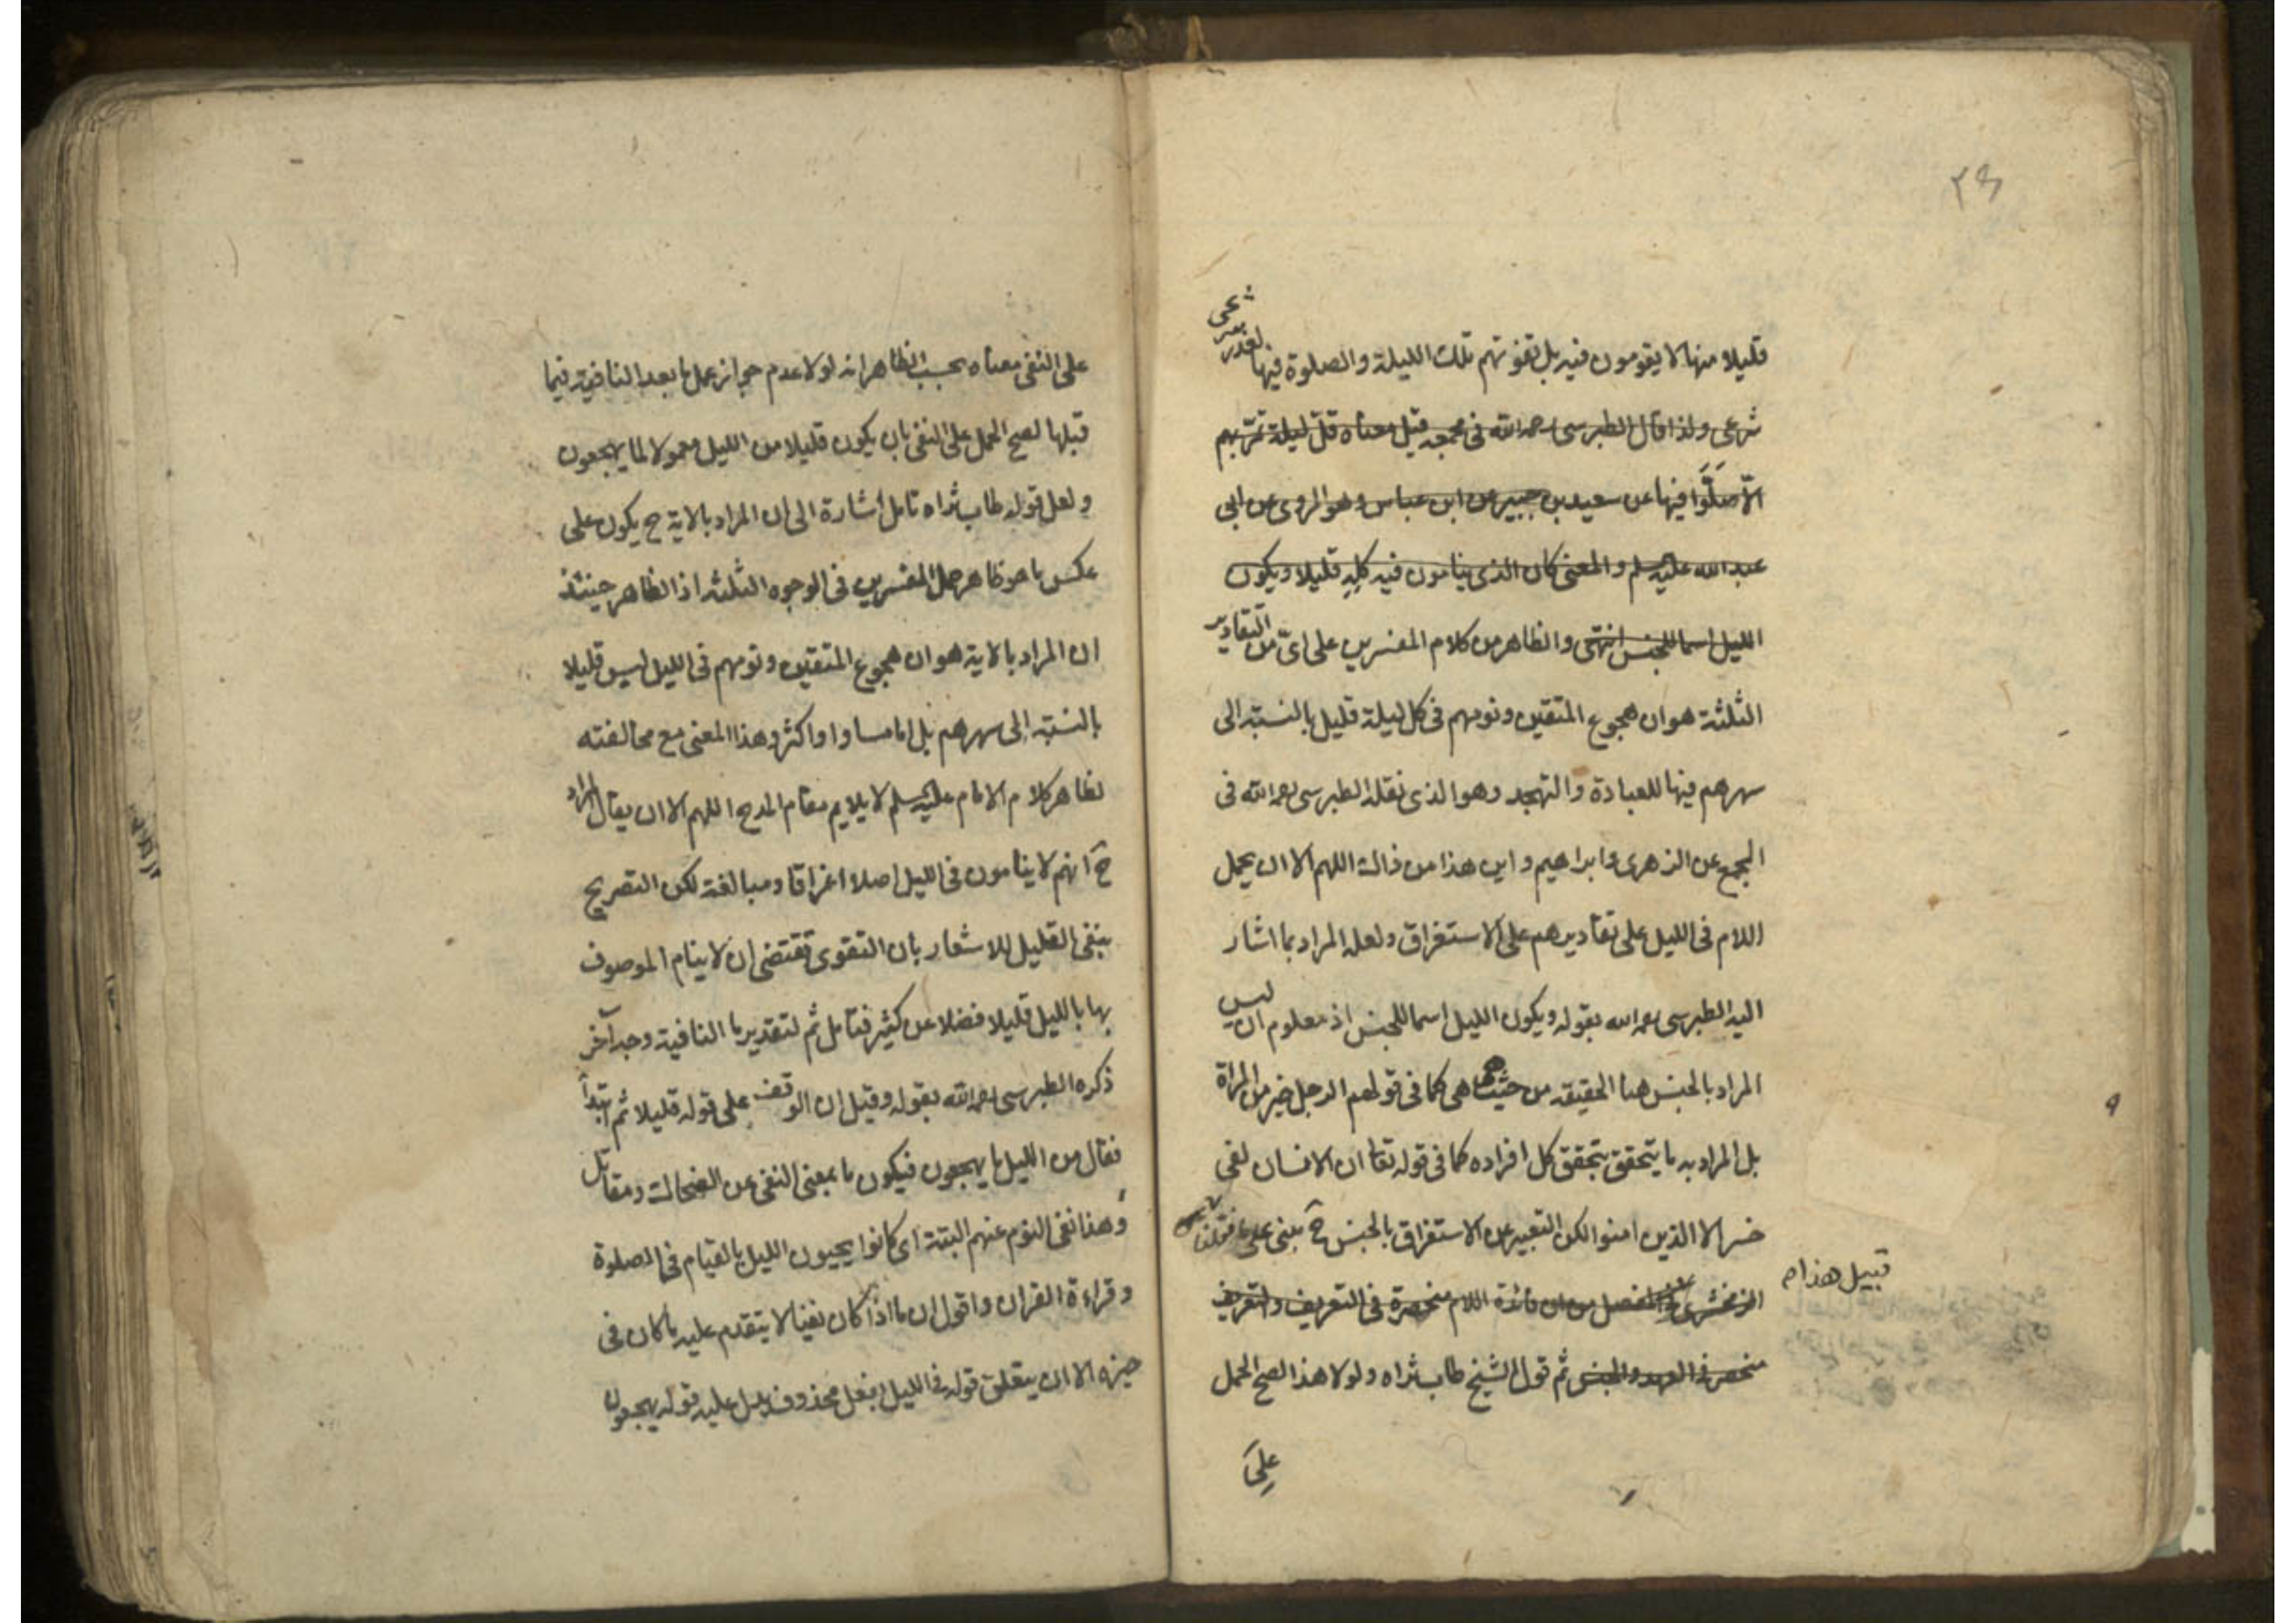 ٢٩
قليلا منها لا يقومون فيه بل تفوتهم تلك الليلة والصلوة فيها لعذر
شرعى ولذا قال الطبرسى رحمه الله فى مجمعه قيل معناه قل ليلة تمر بهم
الا صلوا فيها عن سعيد بن جبير عن ابن عباس وهو المروى عن ابى
عبد الله عليه السلم والمعنى كان الذى ينامون فيه كله قليلا ويكون
الليل اسما للجنس انتهى والظاهر من كلام المفسرين على اى من التقادير
الثلثة هو ان هجوع المتقين ونومهم فى كل ليلة قليل بالنسبة الى
سهرهم فيها للعبادة والتهجد وهو الذى نقله الطبرسى رحمه الله فى
المجمع عن الزهرى وابراهيم واين هذا من ذاك اللهم الا ان يحمل
اللام فى الليل على تقاديرهم على الاستغراق ولعله المراد بما اشار
اليه الطبرسى رحمه الله بقوله ويكون الليل اسما للجنس اذ معلوم ان ليس
المراد بالجنس هنا الحقيقة من حيث هى كما فى قولهم الرجل خير من المراة
بل المراد به ما يتحقق بتحقق كل افراده كما فى قوله تعا ان الانسان لفى
خسر الا الذين امنوا لكن التعبير عن الاستغراق بالجنس ح مبنى على
قبيل هذا م
الزمخشرى فى المفصل من ان فائدة اللام منحصرة فى التعريف والتعريف
منحصر فى العهد والجنس ثم قول الشيخ طاب ثراه ولولا هذا لصح الحمل
على
على النفى معناه بحسب الظاهر انه لولا عدم جواز عمل ما بعد النافية فيما
قبلها لصح الحمل على النفى بان يكون قليلا من الليل معمولا لما يهجعون
ولعل قوله طاب ثراه تامل اشارة الى ان المراد بالاية ح يكون على
عكس ما هو ظاهر حمل المفسرين فى الوجوه الثلثة اذ الظاهر حينئذ
ان المراد بالاية هو ان هجوع المتقين ونومهم فى الليل ليس قليلا
بالنسبة الى سهرهم بل اما مساو او اكثر وهذا المعنى مع مخالفته
لظاهر كلام الامام عليه السلم لا يلايم مقام المدح اللهم الا ان يقال المراد
ح انهم لا ينامون فى الليل اصلا اغراقا ومبالغة لكن التصريح
بنفى القليل للاشعار بان التقوى تقتضى ان لا ينام الموصوف
بها بالليل قليلا فضلا عن كثير فتامل ثم لتقدير ما النافية وجه آخر
ذكره الطبرسى رحمه الله بقوله وقيل ان الوقف على قوله قليلا ثم ابتدأ
فقال من الليل ما يهجعون فيكون ما بمعنى النفى عن الضحاك ومقاتل
وهذا نفى النوم عنهم البتة اى كانوا يحيون الليل بالقيام فى الصلوة
وقراءة القران واقول ان ما اذا كان نفيا لا يتقدم عليه ما كان فى
حيزه الا ان يتعلق قوله فى الليل بفعل محذوف يدل عليه قوله يهجعون